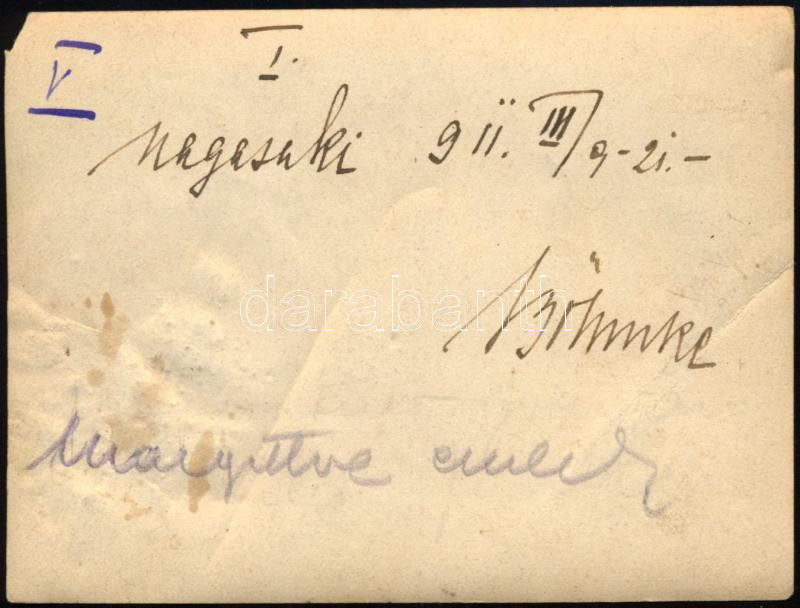 V I.
Nagasaki 911. III/9-21.-
Böhmke
darabanth
emlék